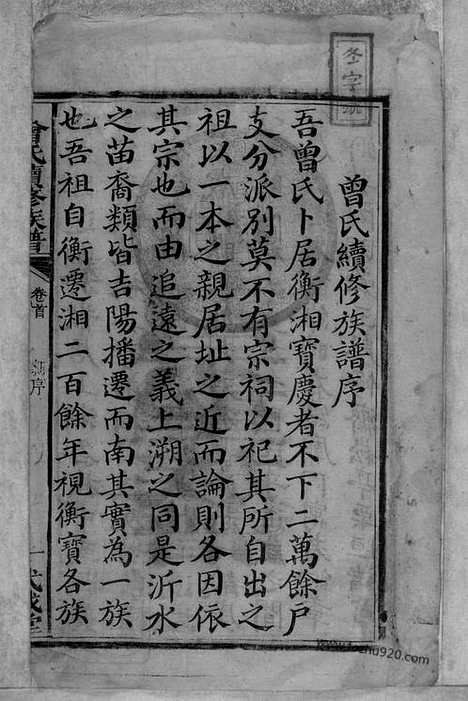 曾氏續修族譜序
吾曾氏卜居衡湘寶慶者不下二萬餘戶
支分派別莫不有宗祠以祀其所自出之
祖以一本之親居址之近而論則各因依
其宗也而由追遠之義上溯之同是沂水
之苗裔類皆吉陽播遷而南其實為一族
也吾祖自衡遷湘二百餘年視衡寶各族
曾氏續修族譜
卷首
序
一
武城堂